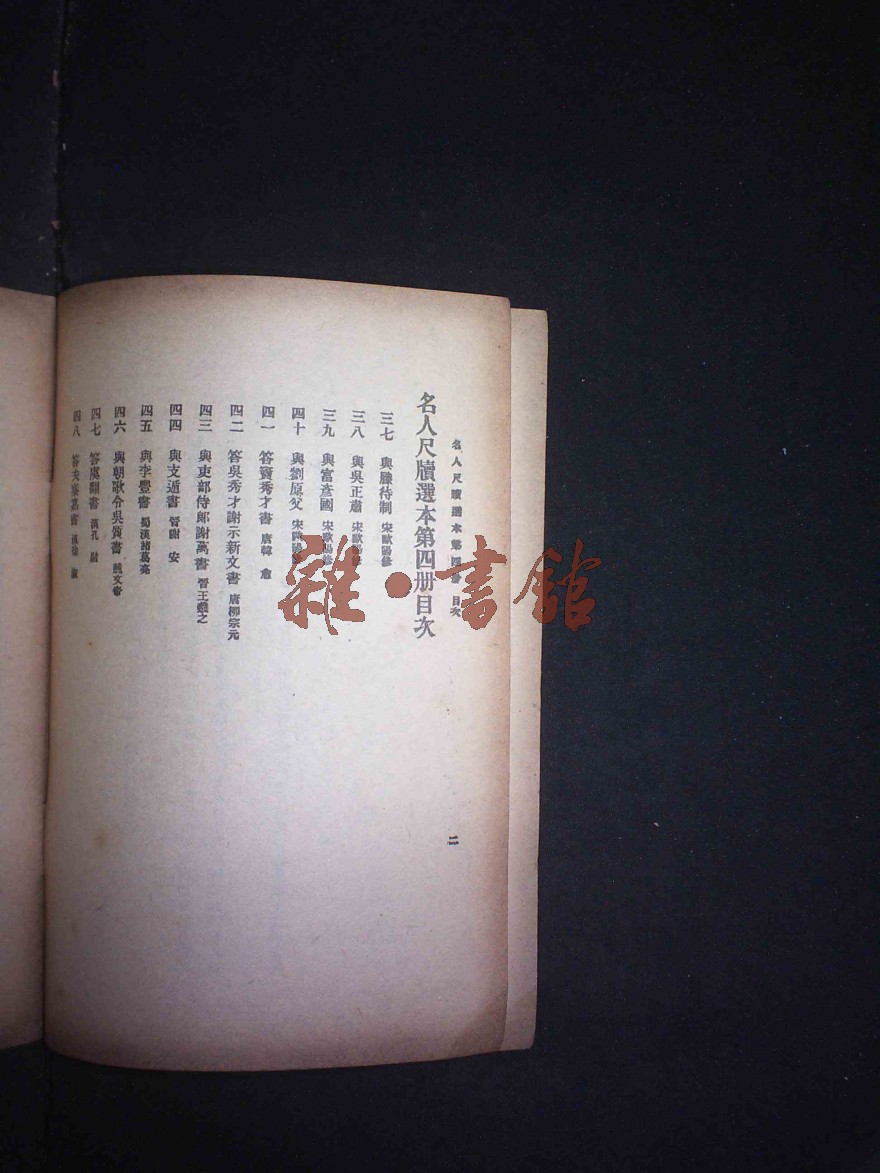 名人尺牘選本第四册 目次
二
名人尺牘選本第四册目次
三七 與滕待制 宋歐陽修
三八 與吳正肅 宋歐陽修
三九 與富彥國 宋歐陽修
四十 與劉原父 宋歐陽修
四一 答竇秀才書 唐韓 愈
四二 答吳秀才謝示新文書 唐柳宗元
四三 與吏部侍郎謝萬書 晉王羲之
四四 與支遁書 晉謝 安
四五 與李豐書 蜀漢諸葛亮
四六 與朝歌令吳質書 魏文帝
四七 答虞翻書 漢孔 融
四八 答夫秦嘉書 漢徐 淑
雜·書館